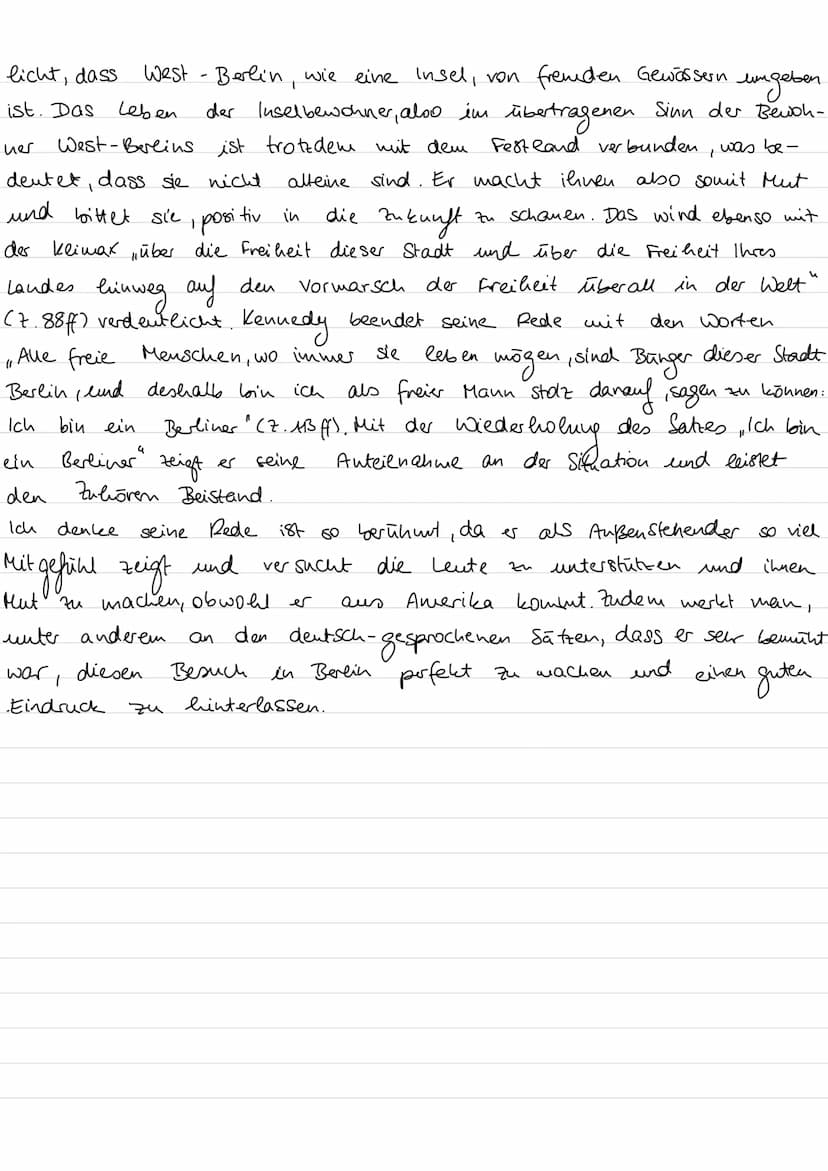 licht, dass West-Berlin, wie eine Insel, von fremden Gewässern umgeben
ist. Das Leben der Inselbewohner, also im übertragenen Sinn der Bewoh-
ner West-Berlins ist trotzdem mit dem Festland verbunden, was be-
deutet, dass sie nicht alleine sind. Er macht ihnen also somit Mut
und bittet sie, positiv in die Zukunft zu schauen. Das wird ebenso mit
der Klimax „über die Freiheit dieser Stadt und über die Freiheit Ihres
Landes hinweg auf den Vormarsch der Freiheit überall in der Welt"
(Z. 88ff) verdeutlicht. Kennedy beendet seine Rede mit den Worten
„Alle freie Menschen, wo immer sie leben mögen, sind Bürger dieser Stadt
Berlin, und deshalb bin ich als freier Mann stolz darauf, sagen zu können:
Ich bin ein Berliner" (Z. 113 ff). Mit der Wiederholung des Satzes „Ich bin
ein Berliner" zeigt er seine Anteilnahme an der Situation und leistet
den Zuhörern Beistand.
Ich denke seine Rede ist so berühmt, da er als Außenstehender so viel
Mitgefühl zeigt und versucht die Leute zu unterstützen und ihnen
Mut zu machen, obwohl er aus Amerika kommt. Zudem merkt man,
unter anderem an den deutsch-gesprochenen Sätzen, dass er sehr bemüht
war, diesen Besuch in Berlin perfekt zu machen und einen guten
Eindruck zu hinterlassen.